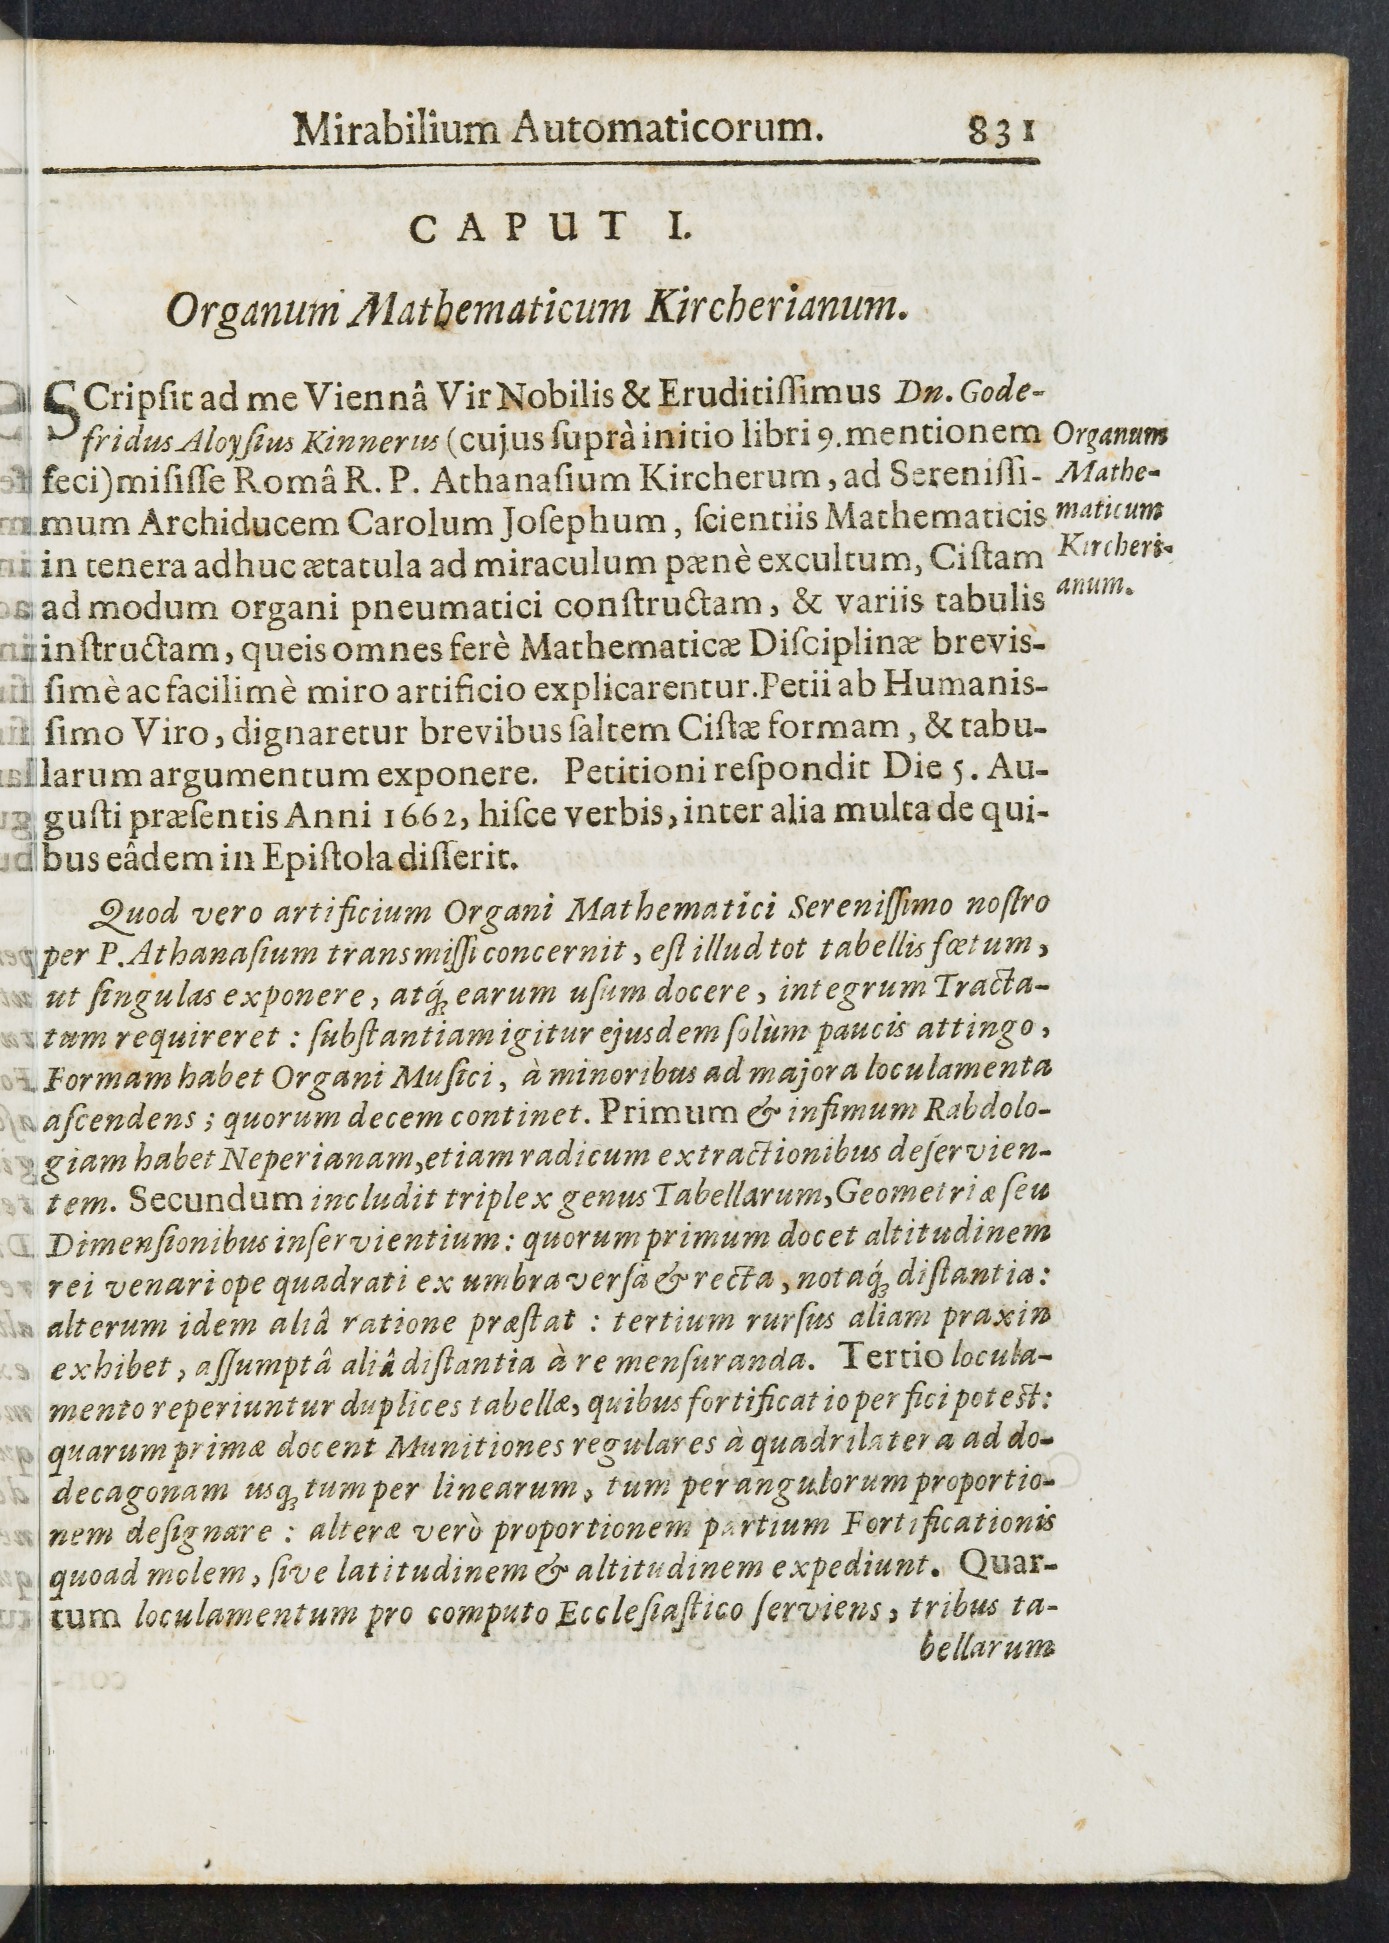 Mirabilium Automaticorum. 831
CAPUT I.
Organum Mathematicum Kircherianum.
SCripſit ad me Viennâ Vir Nobilis & Eruditiſſimus Dn. Gode-
fridus Aloyſius Kinnerus (cujus ſuprà initio libri 9. mentionem
feci) miſiſſe Româ R. P. Athanaſium Kircherum, ad Sereniſſi-
mum Archiducem Carolum Joſephum, ſcientiis Mathematicis
in tenera adhuc ætatula ad miraculum pænè excultum, Ciſtam
ad modum organi pneumatici conſtructam, & variis tabulis
inſtructam, queis omnes ferè Mathematicæ Diſciplinæ brevis-
ſimè ac facilimè miro artificio explicarentur. Petii ab Humanis-
ſimo Viro, dignaretur brevibus ſaltem Ciſtæ formam, & tabu-
larum argumentum exponere. Petitioni reſpondit Die 5. Au-
guſti præſentis Anni 1662, hiſce verbis, inter alia multa de qui-
bus eâdem in Epiſtola diſſerit.
Organum
Mathe-
maticum
Kircheri-
anum.
Quod vero artificium Organi Mathematici Sereniſſimo noſtro
per P. Athanaſium transmiſſi concernit, eſt illud tot tabellis fœtum,
ut ſingulas exponere, atq́; earum uſum docere, integrum Tracta-
tum requireret : ſubſtantiam igitur ejusdem ſolùm paucis attingo,
Formam habet Organi Muſici, à minoribus ad majora loculamenta
aſcendens ; quorum decem continet. Primum & infimum Rabdolo-
giam habet Neperianam, etiam radicum extractionibus deſervien-
tem. Secundum includit triplex genus Tabellarum, Geometriæ ſeu
Dimenſionibus inſervientium : quorum primum docet altitudinem
rei venari ope quadrati ex umbra verſa & recta, notaq́; diſtantia :
alterum idem aliâ ratione præſtat : tertium rurſus aliam praxin
exhibet, aſſumptâ aliâ diſtantia à re menſuranda. Tertio locula-
mento reperiuntur duplices tabellæ, quibus fortificatio perfici poteſt :
quarum primæ docent Munitiones regulares à quadrilatera ad do-
decagonam usq; tum per linearum, tum per angulorum proportio-
nem deſignare : alteræ verò proportionem partium Fortificationis
quoad molem, ſive latitudinem & altitudinem expediunt. Quar-
tum loculamentum pro computo Eccleſiaſtico ſerviens, tribus ta-
bellarum